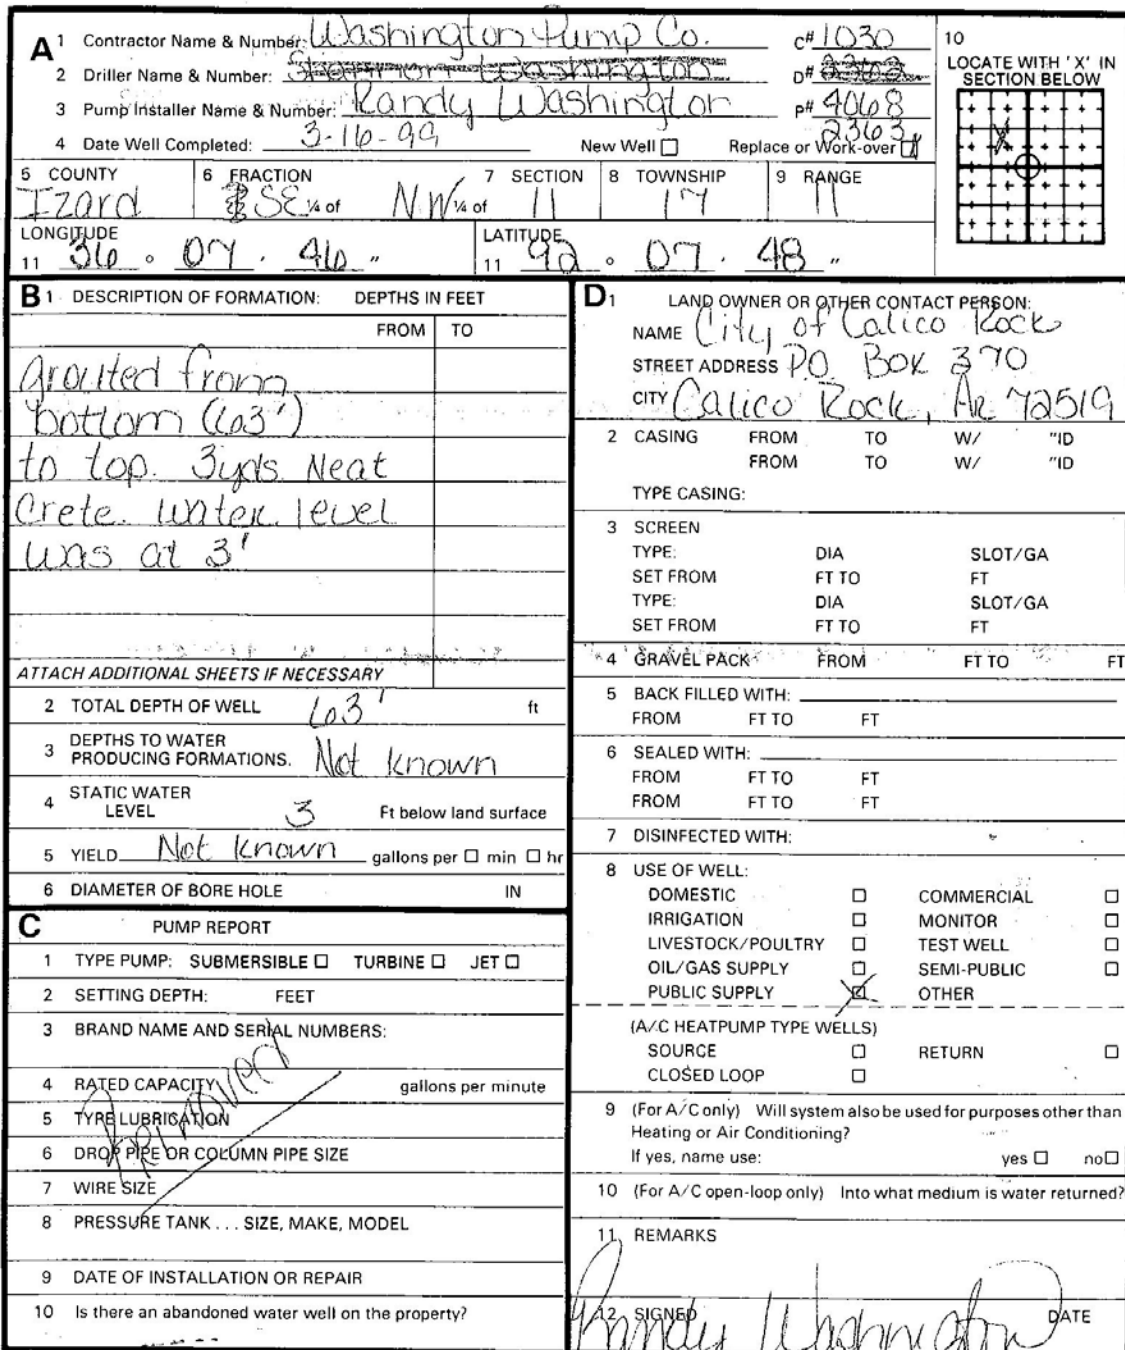 A 1 Contractor Name & Number: Washington Pump Co. C# 1030
2 Driller Name & Number: Washington D#
3 Pump Installer Name & Number: Randy Washington P# 4068
2363
4 Date Well Completed: 3-16-99 New Well □ Replace or Work-over □
10
LOCATE WITH 'X' IN
SECTION BELOW
X
5 COUNTY 6 FRACTION 7 SECTION 8 TOWNSHIP 9 RANGE
Izard SE ¼ of NW ¼ of 11 17 11
LONGITUDE LATITUDE
11 36 ° 07 . 46 " 11 92 ° 07 . 48 "
B 1 DESCRIPTION OF FORMATION: DEPTHS IN FEET
FROM TO
Grouted from
bottom (63')
to top. 3yds. Neat
Crete. Water level
was at 3'
ATTACH ADDITIONAL SHEETS IF NECESSARY
2 TOTAL DEPTH OF WELL 63' ft
3 DEPTHS TO WATER
PRODUCING FORMATIONS. Not known
4 STATIC WATER
LEVEL 3 Ft below land surface
5 YIELD Not known gallons per □ min □ hr
6 DIAMETER OF BORE HOLE IN
C PUMP REPORT
1 TYPE PUMP: SUBMERSIBLE □ TURBINE □ JET □
2 SETTING DEPTH: FEET
3 BRAND NAME AND SERIAL NUMBERS:
Removed
4 RATED CAPACITY gallons per minute
5 TYPE LUBRICATION
6 DROP PIPE OR COLUMN PIPE SIZE
7 WIRE SIZE
8 PRESSURE TANK . . . SIZE, MAKE, MODEL
9 DATE OF INSTALLATION OR REPAIR
10 Is there an abandoned water well on the property?
D 1 LAND OWNER OR OTHER CONTACT PERSON:
NAME City of Calico Rock
STREET ADDRESS PO Box 370
CITY Calico Rock, Ar 72519
2 CASING FROM TO W/ "ID
FROM TO W/ "ID
TYPE CASING:
3 SCREEN
TYPE: DIA SLOT/GA
SET FROM FT TO FT
TYPE: DIA SLOT/GA
SET FROM FT TO FT
4 GRAVEL PACK FROM FT TO FT
5 BACK FILLED WITH:
FROM FT TO FT
6 SEALED WITH:
FROM FT TO FT
FROM FT TO FT
7 DISINFECTED WITH:
8 USE OF WELL:
DOMESTIC □ COMMERCIAL □
IRRIGATION □ MONITOR □
LIVESTOCK/POULTRY □ TEST WELL □
OIL/GAS SUPPLY □ SEMI-PUBLIC □
PUBLIC SUPPLY ☒ OTHER
(A/C HEATPUMP TYPE WELLS)
SOURCE □ RETURN □
CLOSED LOOP □
9 (For A/C only) Will system also be used for purposes other than
Heating or Air Conditioning?
If yes, name use: yes □ no □
10 (For A/C open-loop only) Into what medium is water returned?
11 REMARKS
12 SIGNED Randy Washington DATE